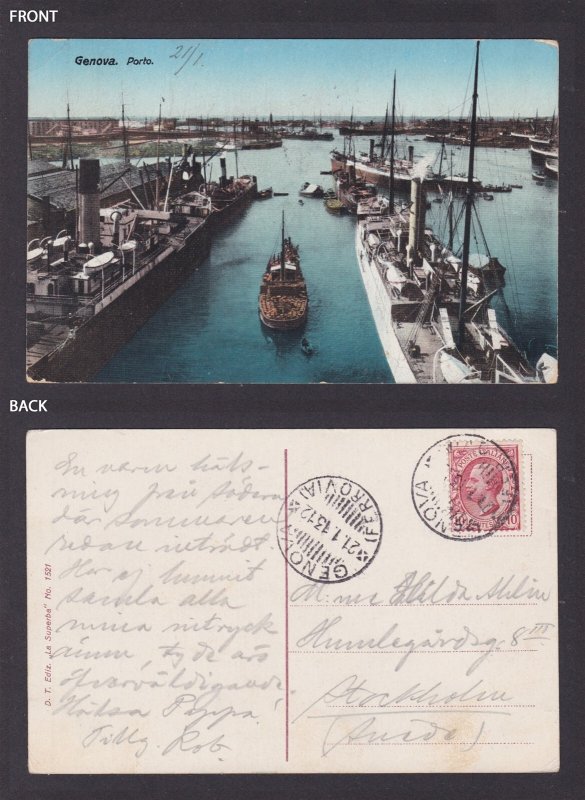 FRONT
Genova. Porto.
21/1
BACK
En varm häls-
ning från Södern
där sommaren
redan inträdt.
Har ej hunnit
samla alla
mina intryck
ännu, ty de äro
överväldigande.
Hälsa Pappa!
Tillg. Rob.
D. T. Ediz. "La Superba" No. 1521
GENOVA
(FERROVIA)
21.1.13.12
GENOVA
POSTE ITALIANE
10
Hilda
Humlegårdsg. 8 III
Stockholm
(Suède)